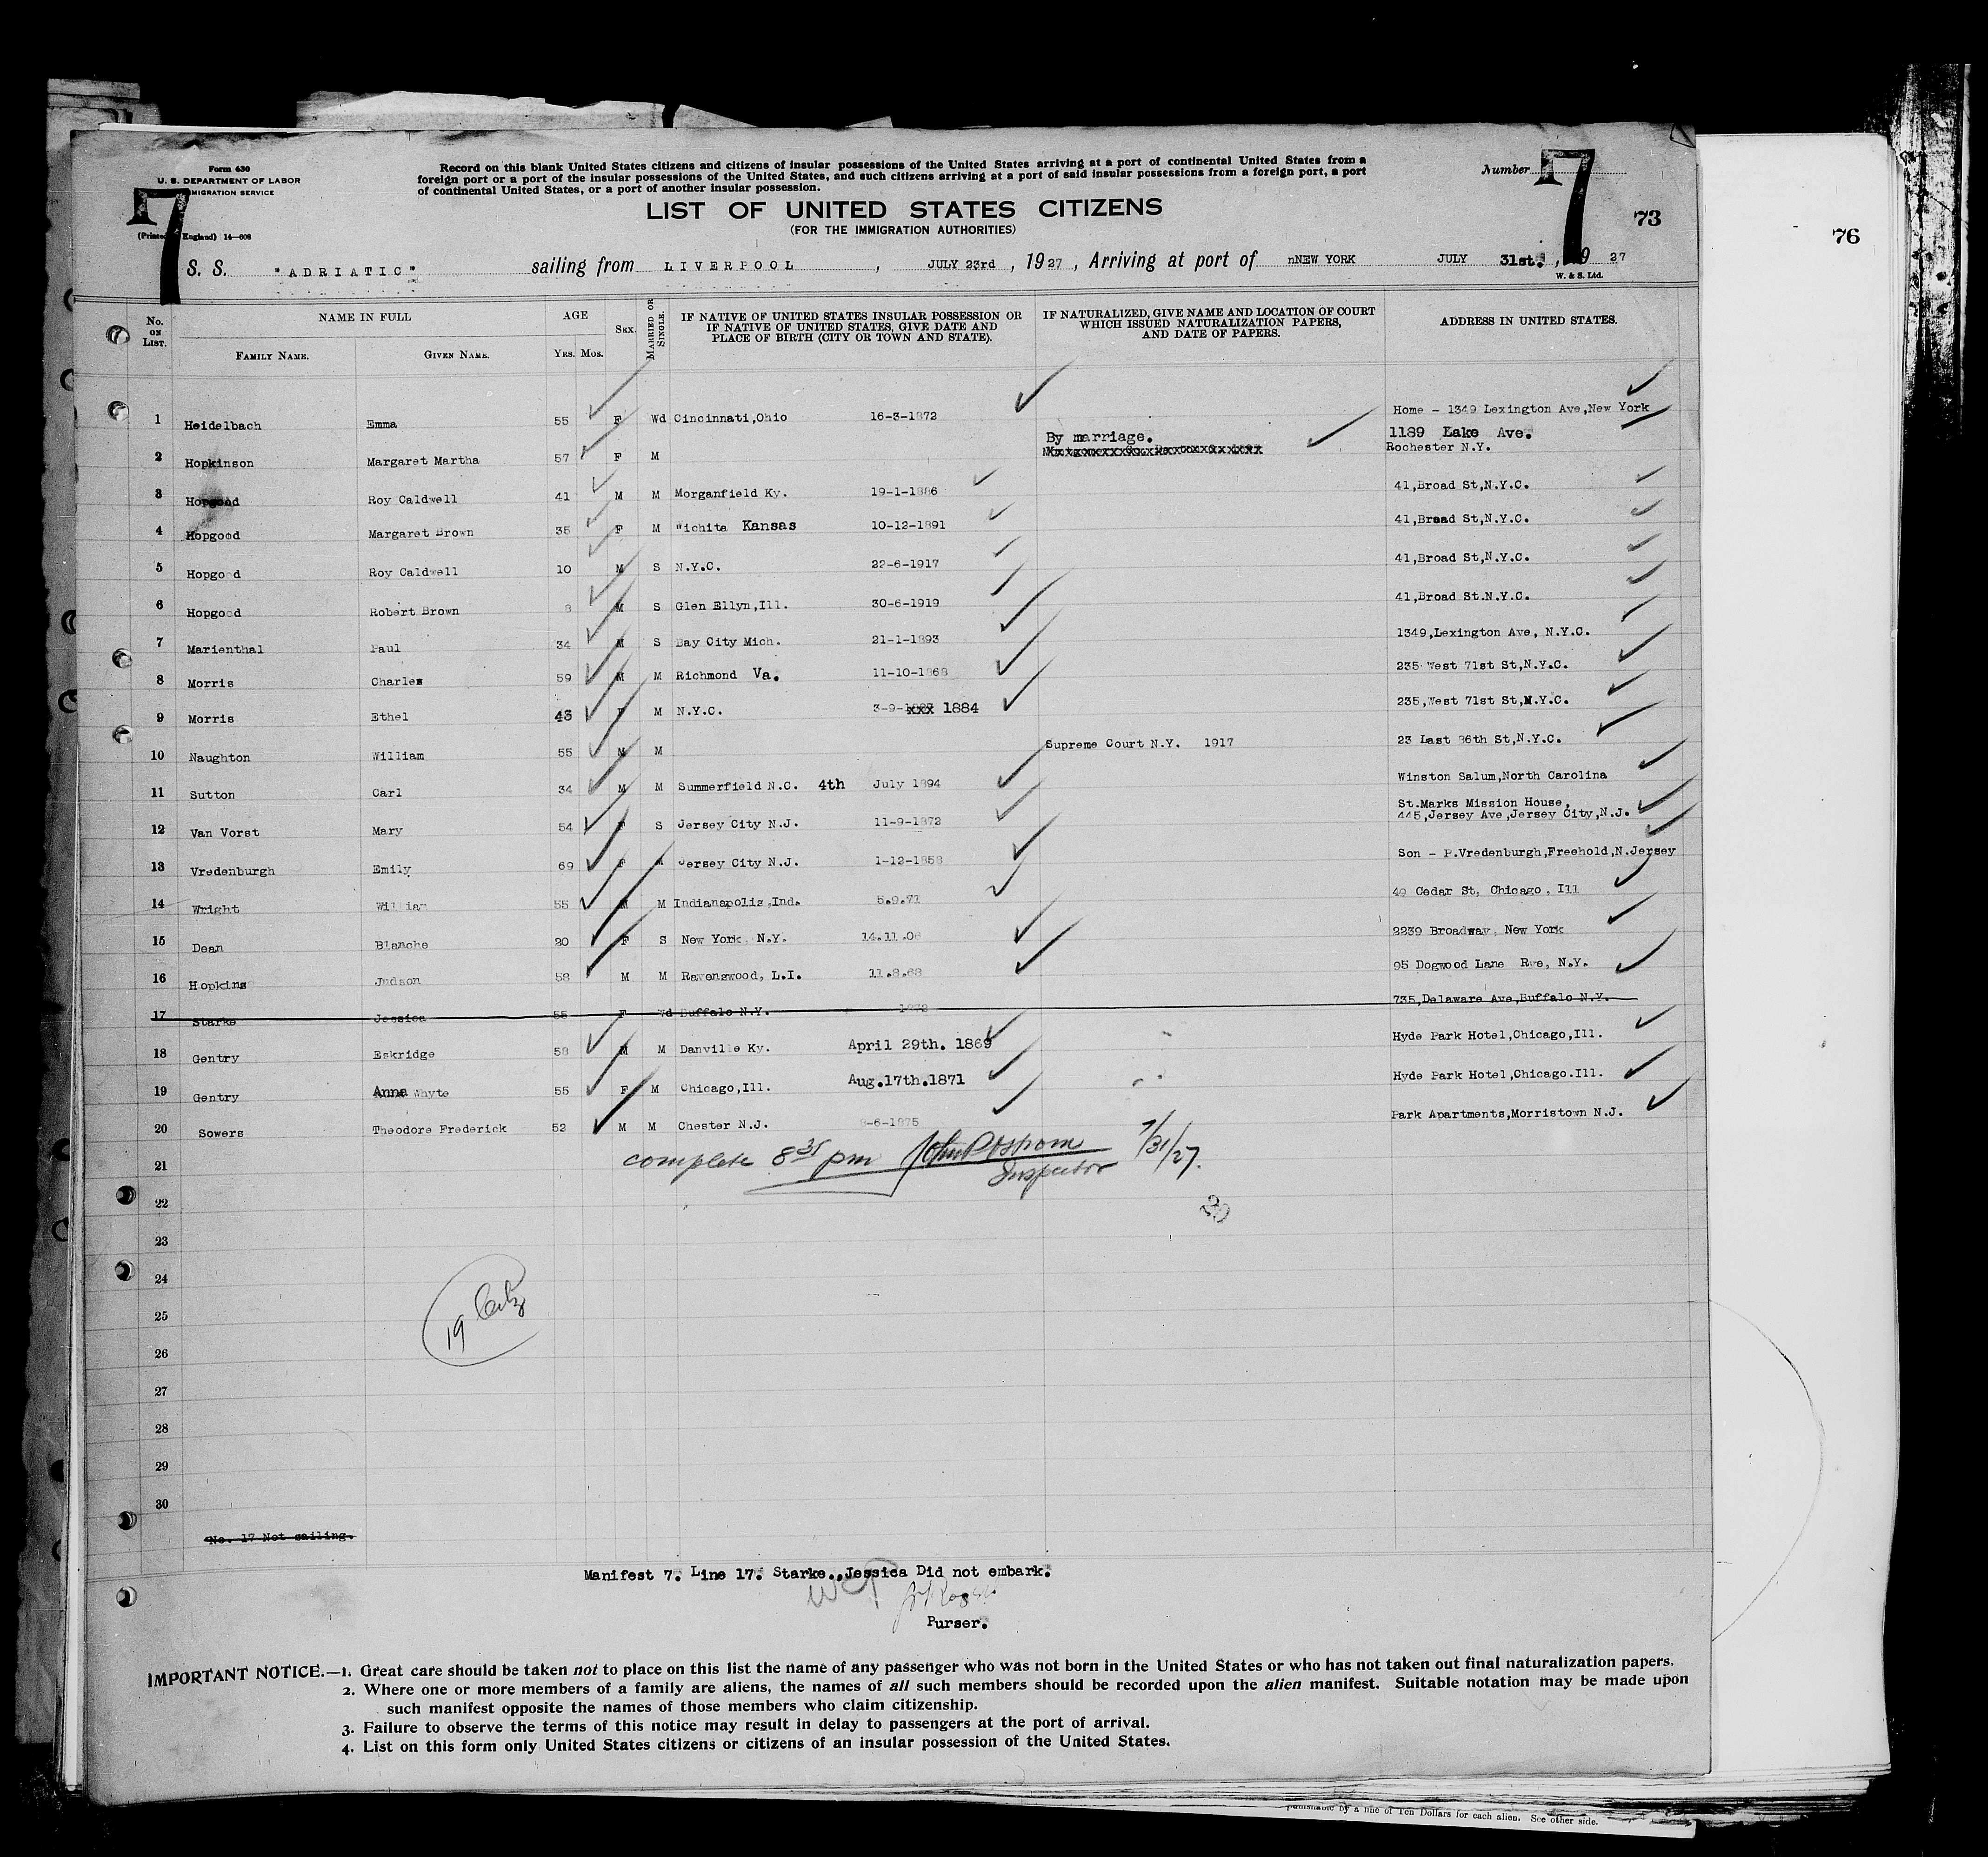 Form 630
U. S. DEPARTMENT OF LABOR
MIGRATION SERVICE
7
(Printed England) 14—608
Record on this blank United States citizens and citizens of insular possessions of the United States arriving at a port of continental United States from a
foreign port or a port of the insular possessions of the United States, and such citizens arriving at a port of said insular possessions from a foreign port, a port
of continental United States, or a port of another insular possession.
Number 7
73
76
LIST OF UNITED STATES CITIZENS
(FOR THE IMMIGRATION AUTHORITIES)
S. S. "ADRIATIC" sailing from LIVERPOOL, JULY 23rd, 1927, Arriving at port of nNEW YORK JULY 31st., 19 27
W. & S. Ltd.
No. ON LIST. NAME IN FULL AGE SEX. MARRIED OR SINGLE. IF NATIVE OF UNITED STATES INSULAR POSSESSION OR IF NATIVE OF UNITED STATES, GIVE DATE AND PLACE OF BIRTH (CITY OR TOWN AND STATE). IF NATURALIZED, GIVE NAME AND LOCATION OF COURT WHICH ISSUED NATURALIZATION PAPERS, AND DATE OF PAPERS. ADDRESS IN UNITED STATES.
FAMILY NAME. GIVEN NAME. YRS. MOS.
1 Heidelbach Emma 55 F Wd Cincinnati,Ohio 16-3-1872 Home - 1349 Lexington Ave,New York
2 Hopkinson Margaret Martha 57 F M By marriage. 1189 Lake Ave. Rochester N.Y.
3 Hopgood Roy Caldwell 41 M M Morganfield Ky. 19-1-1886 41,Broad St,N.Y.C.
4 Hopgood Margaret Brown 35 F M Wichita Kansas 10-12-1891 41,Broad St,N.Y.C.
5 Hopgood Roy Caldwell 10 M S N.Y.C. 22-6-1917 41,Broad St,N.Y.C.
6 Hopgood Robert Brown 8 M S Glen Ellyn,Ill. 30-6-1919 41,Broad St.N.Y.C.
7 Marienthal Paul 34 M S Bay City Mich. 21-1-1893 1349,Lexington Ave, N.Y.C.
8 Morris Charles 59 M M Richmond Va. 11-10-1868 235 West 71st St,N.Y.C.
9 Morris Ethel 43 F M N.Y.C. 3-9-xxx 1884 235,West 71st St,N.Y.C.
10 Naughton William 55 M M Supreme Court N.Y. 1917 23 East 86th St,N.Y.C.
11 Sutton Carl 34 M M Summerfield N.C. 4th July 1894 Winston Salum,North Carolina
12 Van Vorst Mary 54 F S Jersey City N.J. 11-9-1872 St.Marks Mission House, 445,Jersey Ave,Jersey City,N.J.
13 Vredenburgh Emily 69 F M Jersey City N.J. 1-12-1858 Son - P.Vredenburgh,Freehold,N.Jersey
14 Wright William 55 M M Indianapolis,Ind. 5.9.71 40 Cedar St, Chicago, Ill
15 Dean Blanche 20 F S New York N.Y. 14.11.06 2239 Broadway, New York
16 Hopkins Judson 58 M M Ravenswood, L.I. 11.8.68 95 Dogwood Lane Rye, N.Y.
17 Starke Jessica 55 F Wd Buffalo N.Y. 1872 735,Delaware Ave,Buffalo N.Y.
18 Gentry Eskridge 58 M M Danville Ky. April 29th. 1869 Hyde Park Hotel,Chicago,Ill.
19 Gentry Anna Whyte 55 F M Chicago,Ill. Aug.17th.1871 Hyde Park Hotel,Chicago.Ill.
20 Sowers Theodore Frederick 52 M M Chester N.J. 8-6-1875 Park Apartments,Morristown N.J.
21 complete 8 35 pm John Ostrom 7/31/27.
Inspector
22
23
24
25
26
27
28
29
30
19 Citz
No. 17 Not sailing.
Manifest 7. Line 17. Starke.,Jessica Did not embark.
Purser.
IMPORTANT NOTICE.—1. Great care should be taken not to place on this list the name of any passenger who was not born in the United States or who has not taken out final naturalization papers.
2. Where one or more members of a family are aliens, the names of all such members should be recorded upon the alien manifest. Suitable notation may be made upon
such manifest opposite the names of those members who claim citizenship.
3. Failure to observe the terms of this notice may result in delay to passengers at the port of arrival.
4. List on this form only United States citizens or citizens of an insular possession of the United States.
punishable by a fine of Ten Dollars for each alien. See other side.